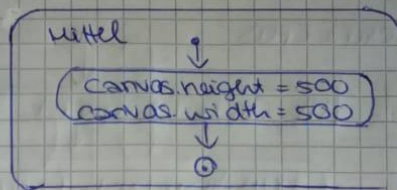 Mittel
canvas.height = 500
canvas.width = 500